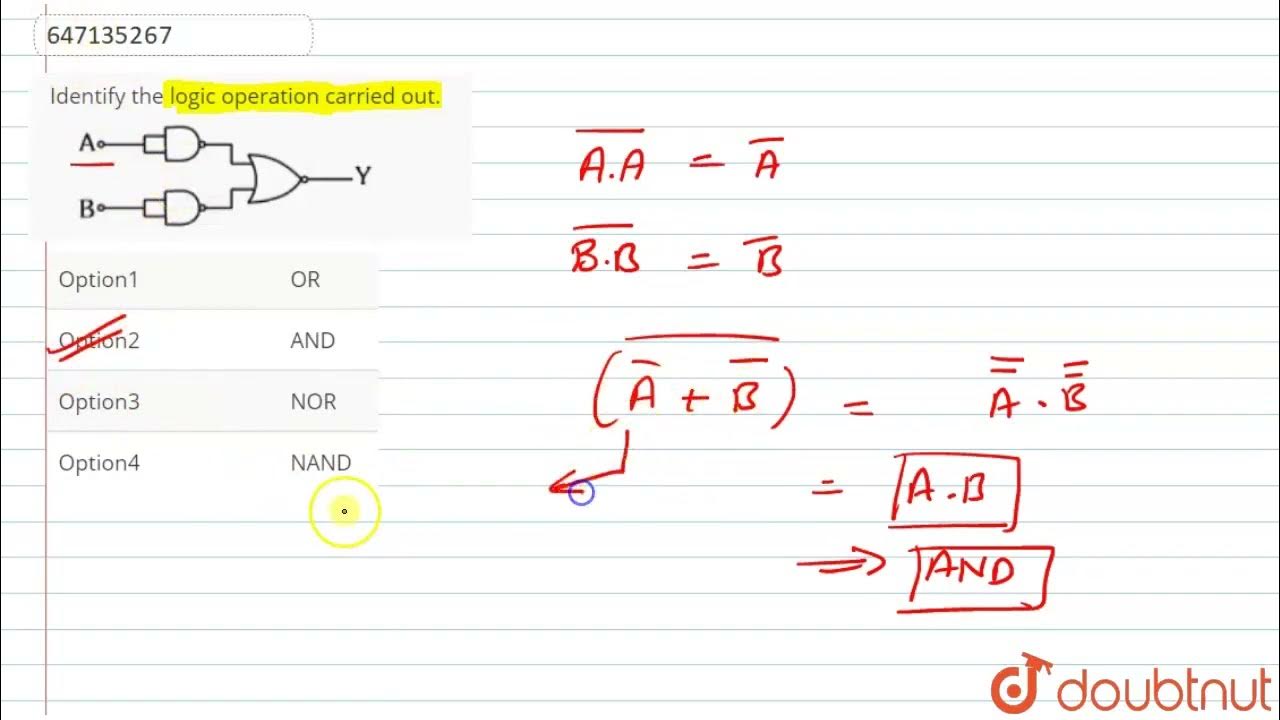 647135267
Identify the logic operation carried out.
A
B
Y
Option1 OR
Option2 AND
Option3 NOR
Option4 NAND
$\overline{A.A} = \overline{A}$
$\overline{B.B} = \overline{B}$
$\overline{(\overline{A} + \overline{B})} = \overline{\overline{A}} . \overline{\overline{B}}$
= A.B
⇒ AND
doubtnut